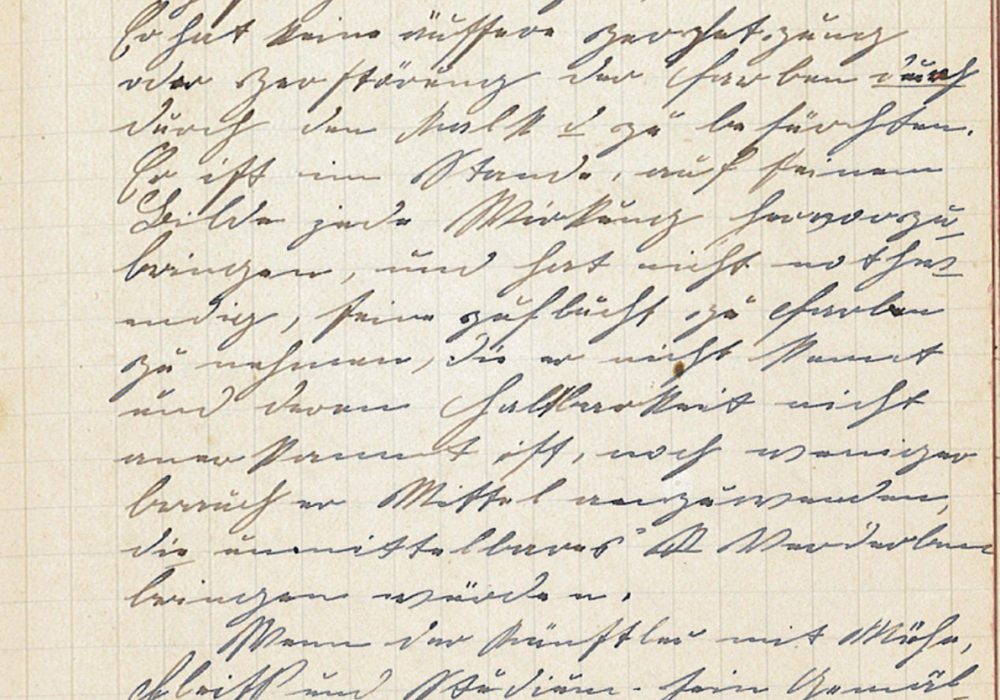 Er hat keine äussere Zersetzung
oder Zerstörung der Farben durch
durch den Kalk zu befürchten.
Er ist im Stande, auf seinem
Bilde jede Wirkung hervorzu
bringen, und hat nicht nothw
endig, seine Zuflucht zu Farben
zu nehmen, die er nicht kennt
und deren Haltbarkeit nicht
anerkannt ist, noch weniger
brauch er Mittel anzuwenden,
die unmittelbares Verderben
bringen würden.
Wenn der Künstler mit Mühe,
Fleiß und Studium sein Gemäl